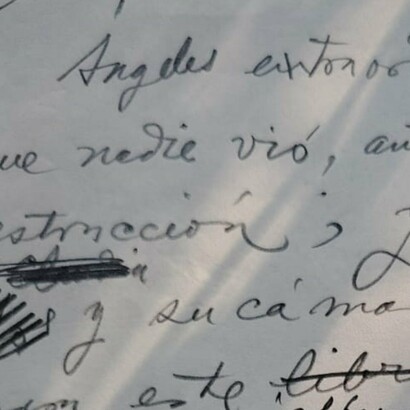 Ángeles extraor
ue nadie vió, aú
strucción, J
y su cáma
este libr